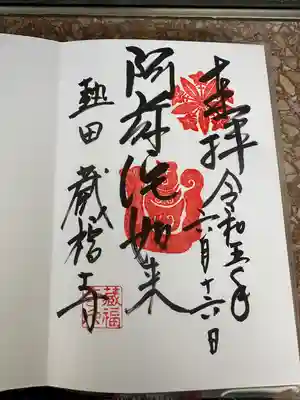 奉拝
令和五年
六月十六日
阿弥陀如来
熱田
蔵福寺